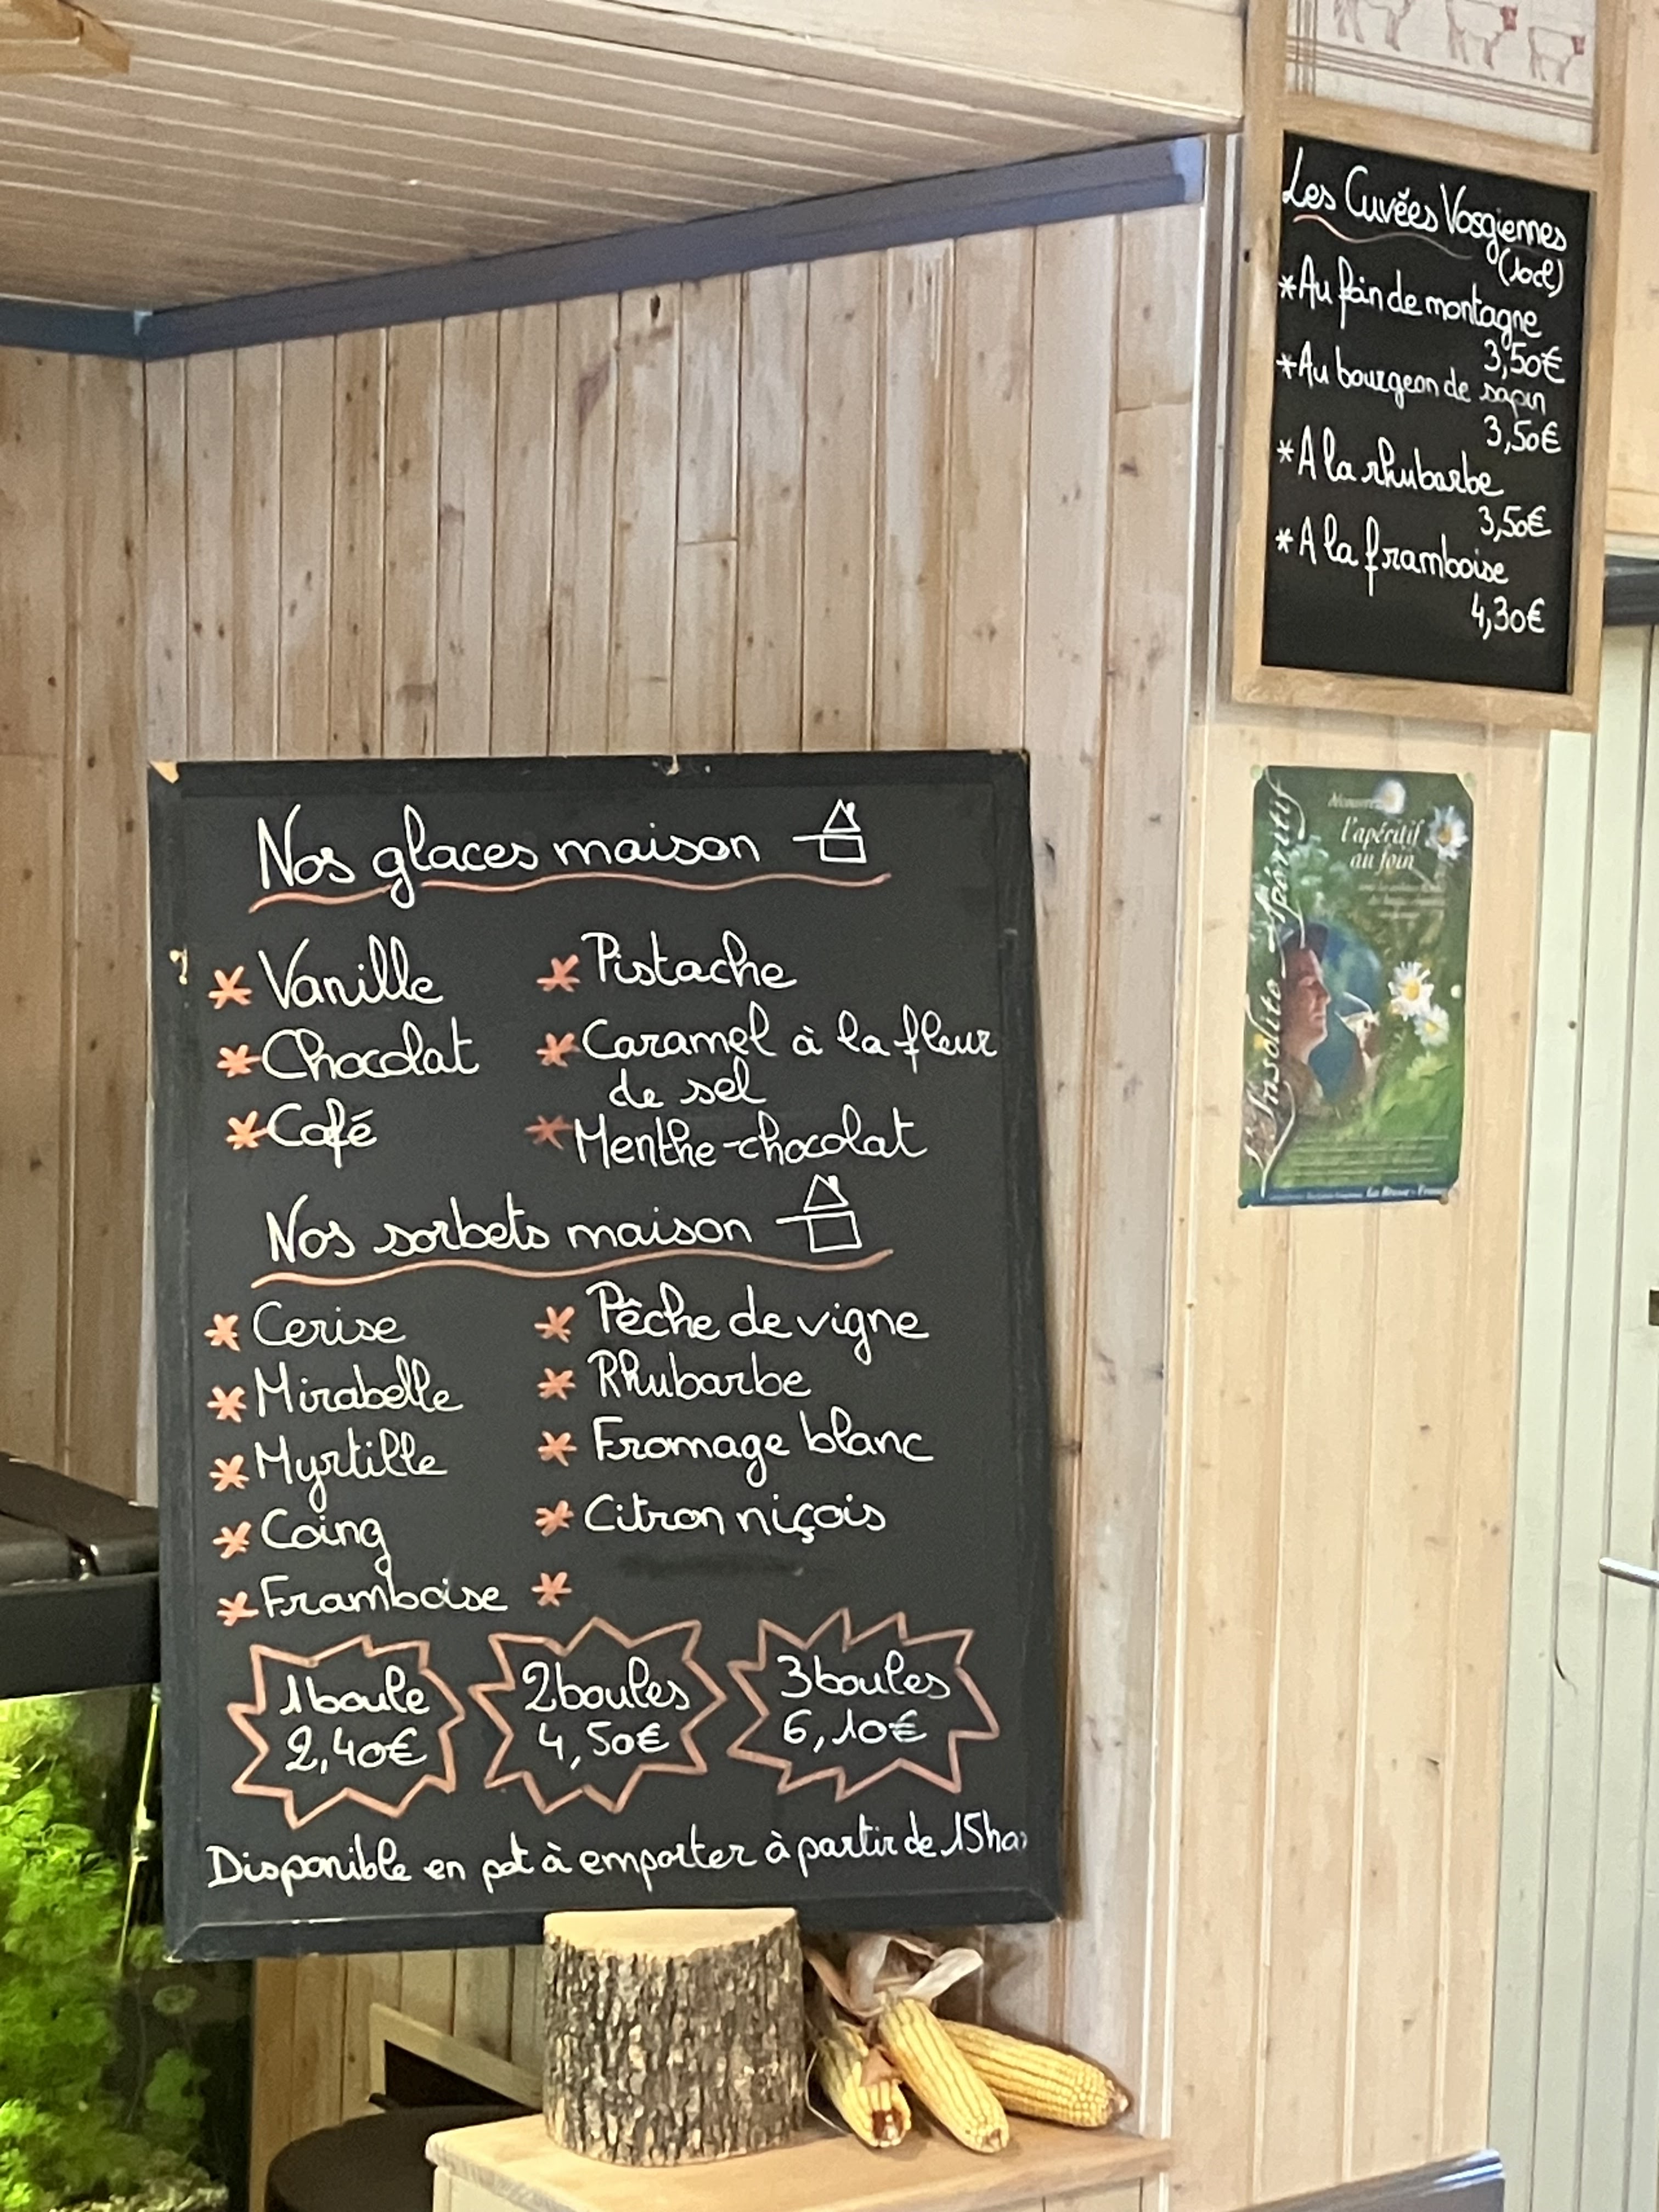 Les Cuvées Vosgiennes
(10cl)
*Au foin de montagne
3,50€
*Au bourgeon de sapin
3,50€
*A la rhubarbe
3,50€
*A la framboise
4,30€
Nos glaces maison
* Vanille
* Chocolat
* Café
* Pistache
* Caramel à la fleur
de sel
* Menthe-chocolat
Nos sorbets maison
* Cerise
* Mirabelle
* Myrtille
* Coing
* Framboise
* Pêche de vigne
* Rhubarbe
* Fromage blanc
* Citron niçois
*
1 boule
2,40€
2 boules
4,50€
3 boules
6,10€
Disponible en pot à emporter à partir de 15h
Découvrez
l'apéritif
au foin
L'Insolite Apéritif
La Bresse - France